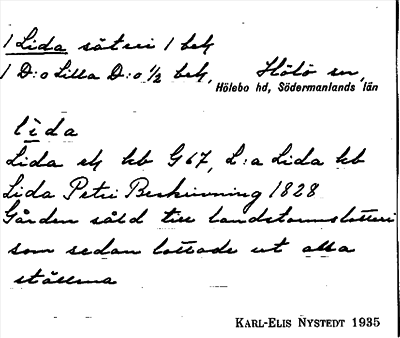 1 Lida säteri 1 hek
1 D:o Lilla D:o ½ hek, Hölö sn,
Hölebo hd, Södermanlands län
lìda
Lida ek kb G67, L:a Lida kb
Lida Petri Beskrivning 1828
Gården såld till landstormslotteri
som sedan lottade ut alla
ställena
KARL-ELIS NYSTEDT 1935